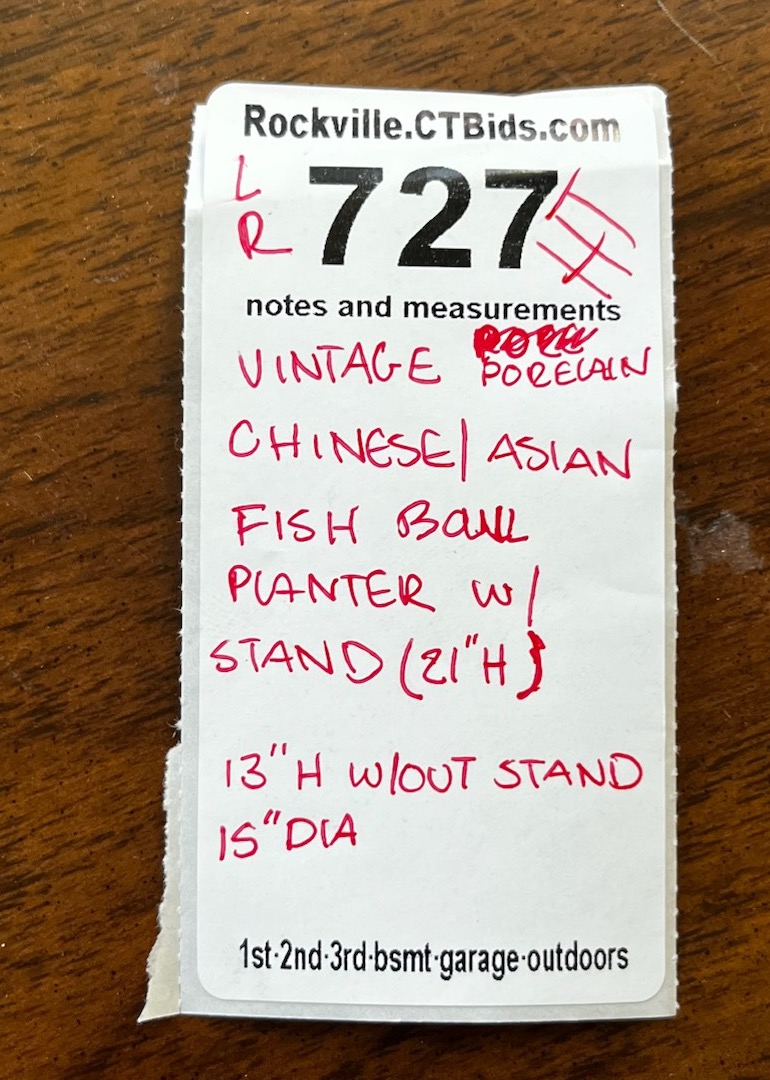 Rockville.CTBids.com
L
R
727
notes and measurements
VINTAGE PORELAIN
CHINESE/ASIAN
FISH BOWL
PLANTER W/
STAND (21"H)
13"H W/OUT STAND
15"DIA
1st·2nd·3rd·bsmt·garage·outdoors